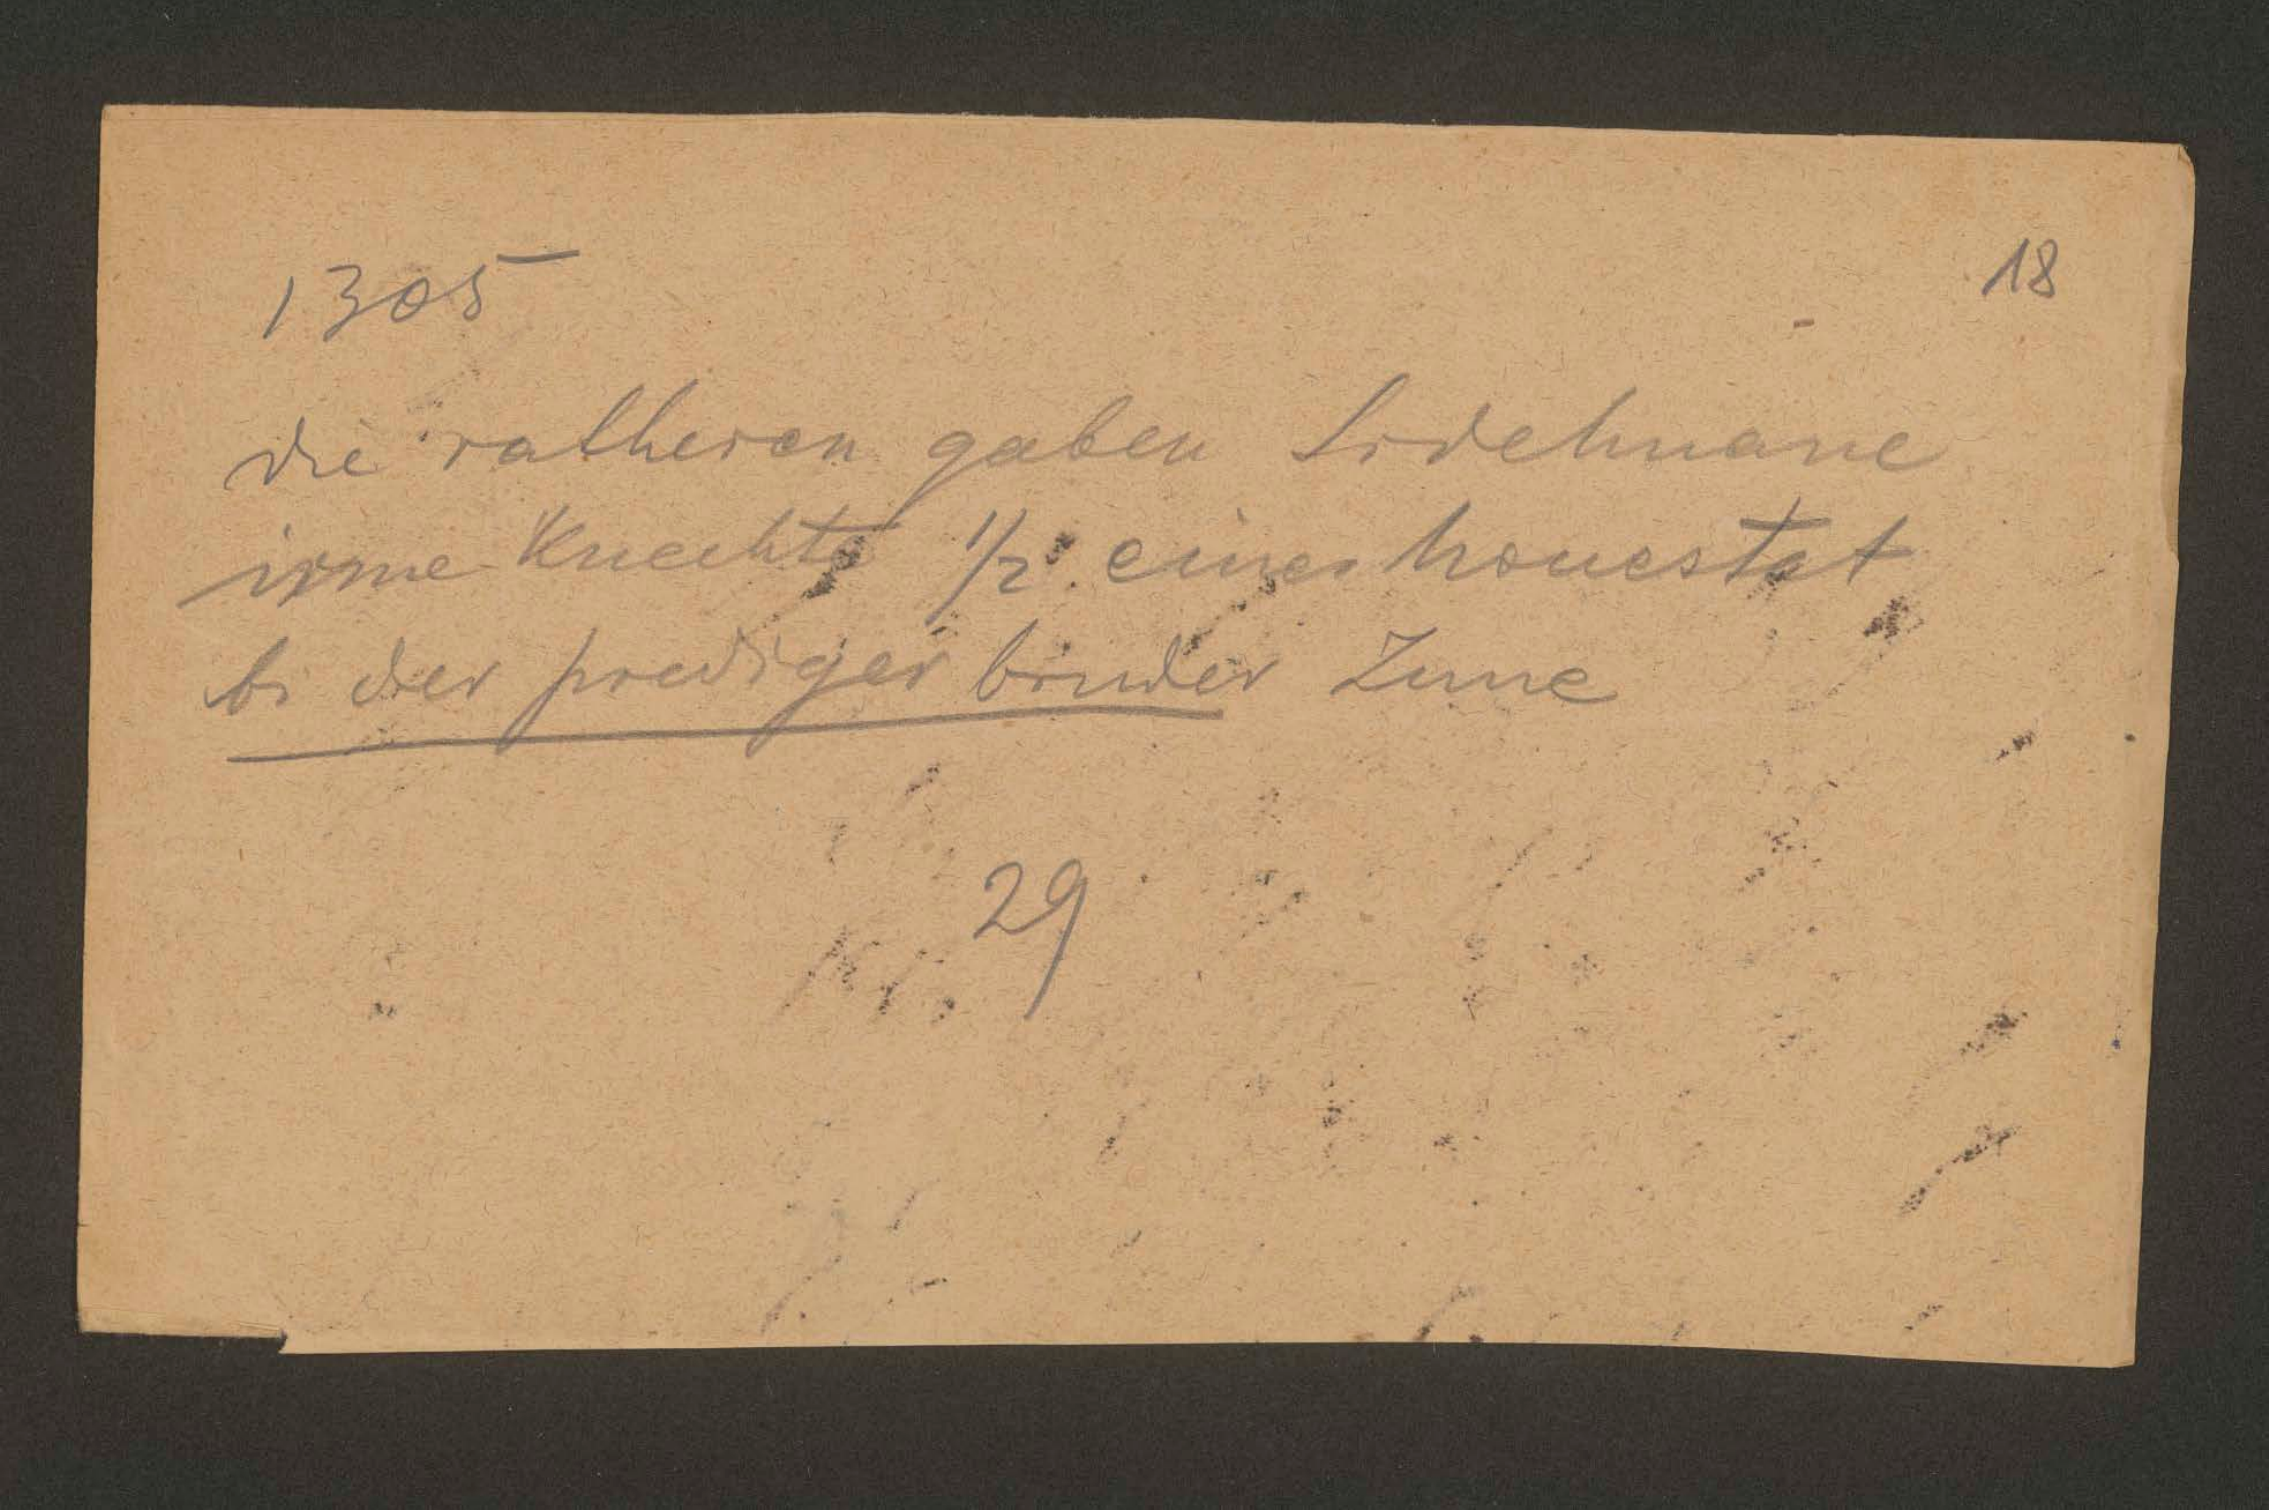 1305
18
die ratheren gaben Sidelmane
irme Knechte 1/2 einer houestat
bi der prediger bruder Zune
29